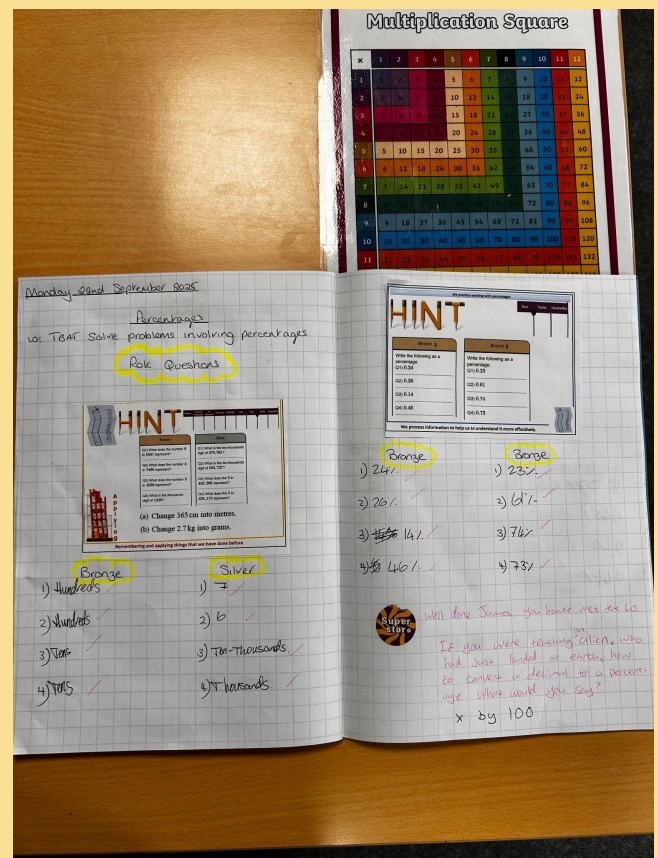 Multiplication Square
× 1 2 3 4 5 6 7 8 9 10 11 12
1 1 2 3 4 5 6 7 8 9 10 11 12
2 10 12 14 18 20 22 24
3 15 18 21 27 30 33 36
4 20 24 28 36 40 44 48
5 5 10 15 20 25 30 35 45 50 55 60
6 6 12 18 24 30 36 42 54 60 66 72
7 7 14 21 28 35 42 49 63 70 77 84
8 72 80 88 96
9 9 18 27 36 45 54 63 72 81 90 99 108
10 10 20 30 40 50 60 70 80 90 100 110 120
11 11 22 33 44 55 66 77 88 99 110 121 132
Monday 22nd September 2025
Percentages
LO: TBAT Solve problems involving percentages
Role Questions
HINT
Bronze
Silver
(a) Change 365 cm into metres.
(b) Change 2.7 kg into grams.
Applying
Remembering and applying things that we have done before
Bronze
1) Hundreds
2) Hundreds
3) Tens
4) Tens
Silver
1) 7
2) 6
3) Ten-Thousands
4) Thousands
We practice working with percentages
HINT
Ones Tenths Hundredths
Bronze 1
Write the following as a
percentage:
Q1) 0.24
Q2) 0.26
Q3) 0.14
Q4) 0.46
Bronze 2
Write the following as a
percentage:
Q1) 0.23
Q2) 0.61
Q3) 0.74
Q4) 0.73
We process information to help us to understand it more effectively.
Bronze
1) 24%
2) 26%
3) 14%
4) 46%
Bronze
1) 23%
2) 61%
3) 74%
4) 73%
Super
star
Well done James. You have met the LO.
If you were teaching an alien, who
had just landed on earth, how
to convert a decimal to a percent-
age what would you say?
× by 100